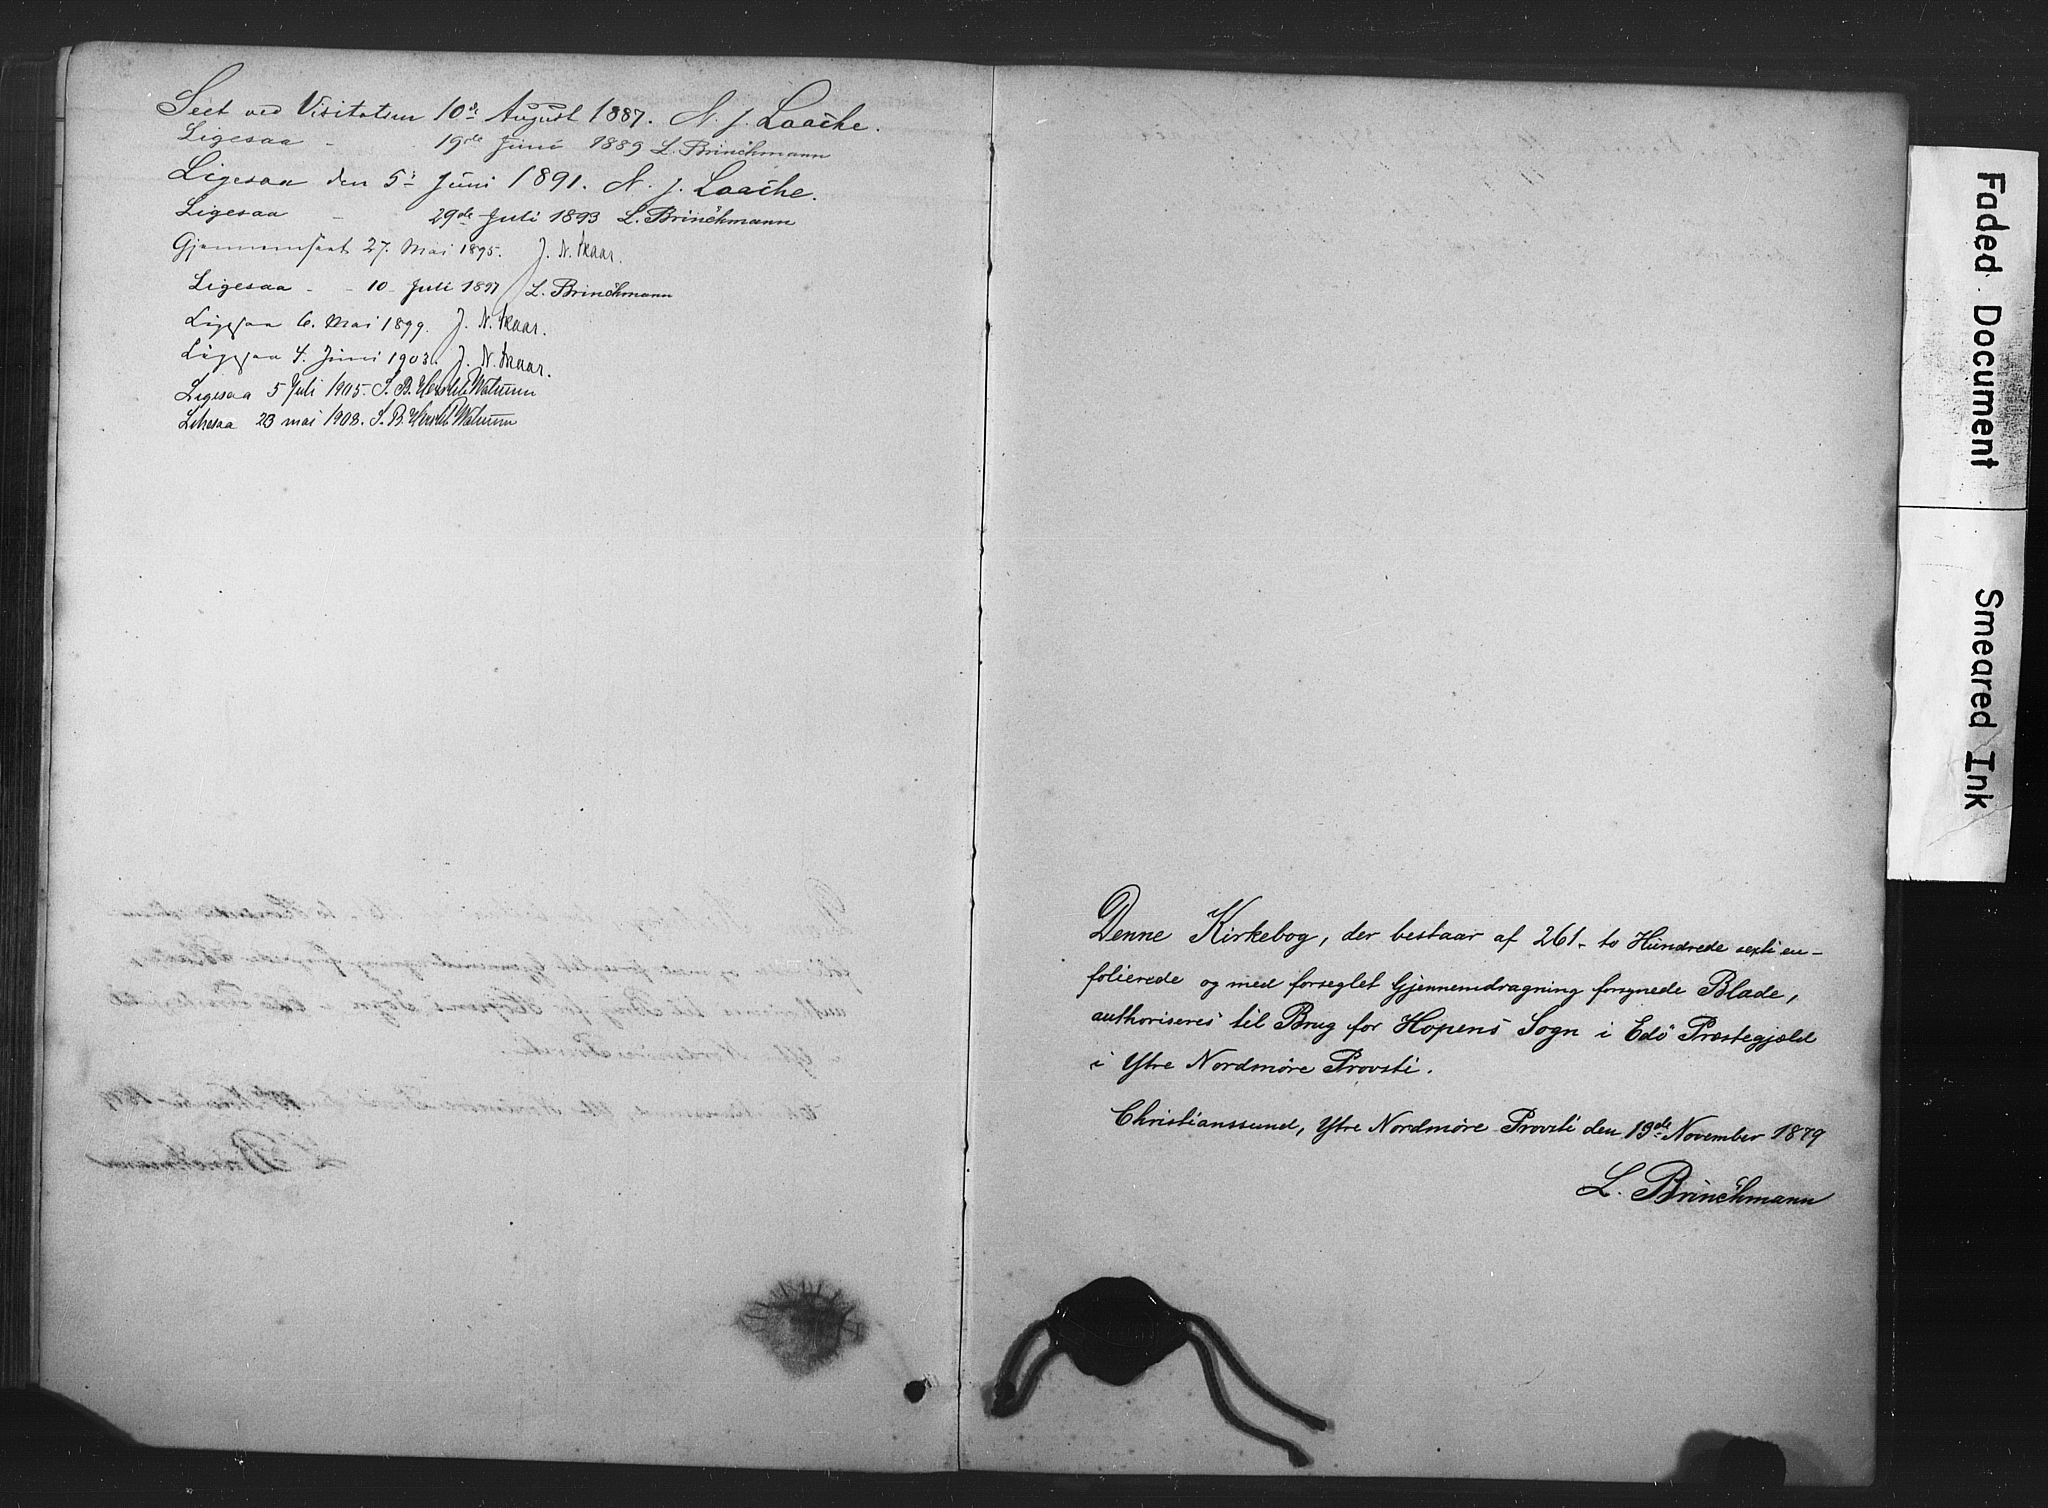 Seet ved Visitatsen 10de August 1887. N. J. Laache.
Ligesaa - 19de Juni 1889 L. Brinchmann
Ligesaa den 5te Juni 1891. N. J. Laache.
Ligesaa - 29de Juli 1893 L. Brinchmann
Gjennemseet 27. Mai 1895. J. N. Skaar.
Ligesaa - - 10 Juli 1897 L. Brinchmann
Ligesaa 6. Mai 1899. J. N. Skaar.
Ligesaa 4. Juni 1903. J. N. Skaar.
Ligesaa 5 Juli 1905. S. B. Hersleb Walnum
Likesaa 23 mai 1908. S. B. Hersleb Walnum
Denne Kirkebog, der bestaar af 261 - to Hundrede sexti en -
folierede og med forseglet Gjennemdragning forsynede Blade,
authoriseres til Brug for Hopens Sogn i Edö Præstegjæld
i Ytre Nordmøre Provsti.
Christianssund, Ytre Nordmøre Provsti den 19de November 1879
L. Brinchmann
Faded Document
Smeared Ink